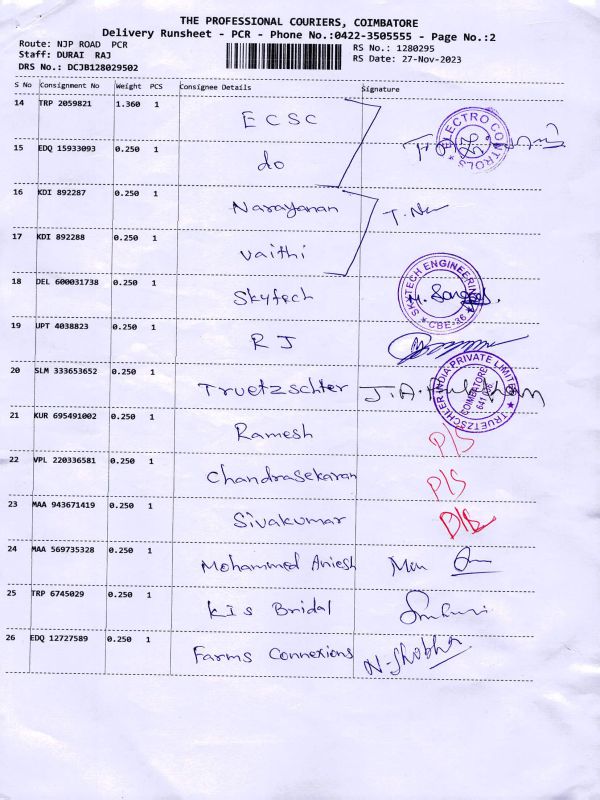 THE PROFESSIONAL COURIERS, COIMBATORE
Delivery Runsheet - PCR - Phone No.:0422-3505555 - Page No.:2
Route: NJP ROAD PCR
RS No.: 1280295
Staff: DURAI RAJ
RS Date: 27-Nov-2023
DRS No.: DCJB128029502
S No Consignment No Weight PCS Consignee Details Signature
14 TRP 2059821 1.360 1 ECSC
ELECTRO CONTROLS
15 EDQ 15933093 0.250 1 do
16 KDI 892287 0.250 1 Narayanan
17 KDI 892288 0.250 1 Vaithi
18 DEL 600031738 0.250 1 Skytech
SKYTECH ENGINEERING CBE-36
19 UPT 4038823 0.250 1 RJ
20 SLM 333653652 0.250 1 Truetzschler
TRUETZSCHLER INDIA PRIVATE LIMITED COIMBATORE
21 KUR 695491002 0.250 1 Ramesh P/S
22 VPL 220336581 0.250 1 Chandrasekaran P/S
23 MAA 943671419 0.250 1 Sivakumar
24 MAA 569735328 0.250 1 Mohammed Aniesh
25 TRP 6745029 0.250 1 KIS Bridal
26 EDQ 12727589 0.250 1 Farms Connexions N. Shobha